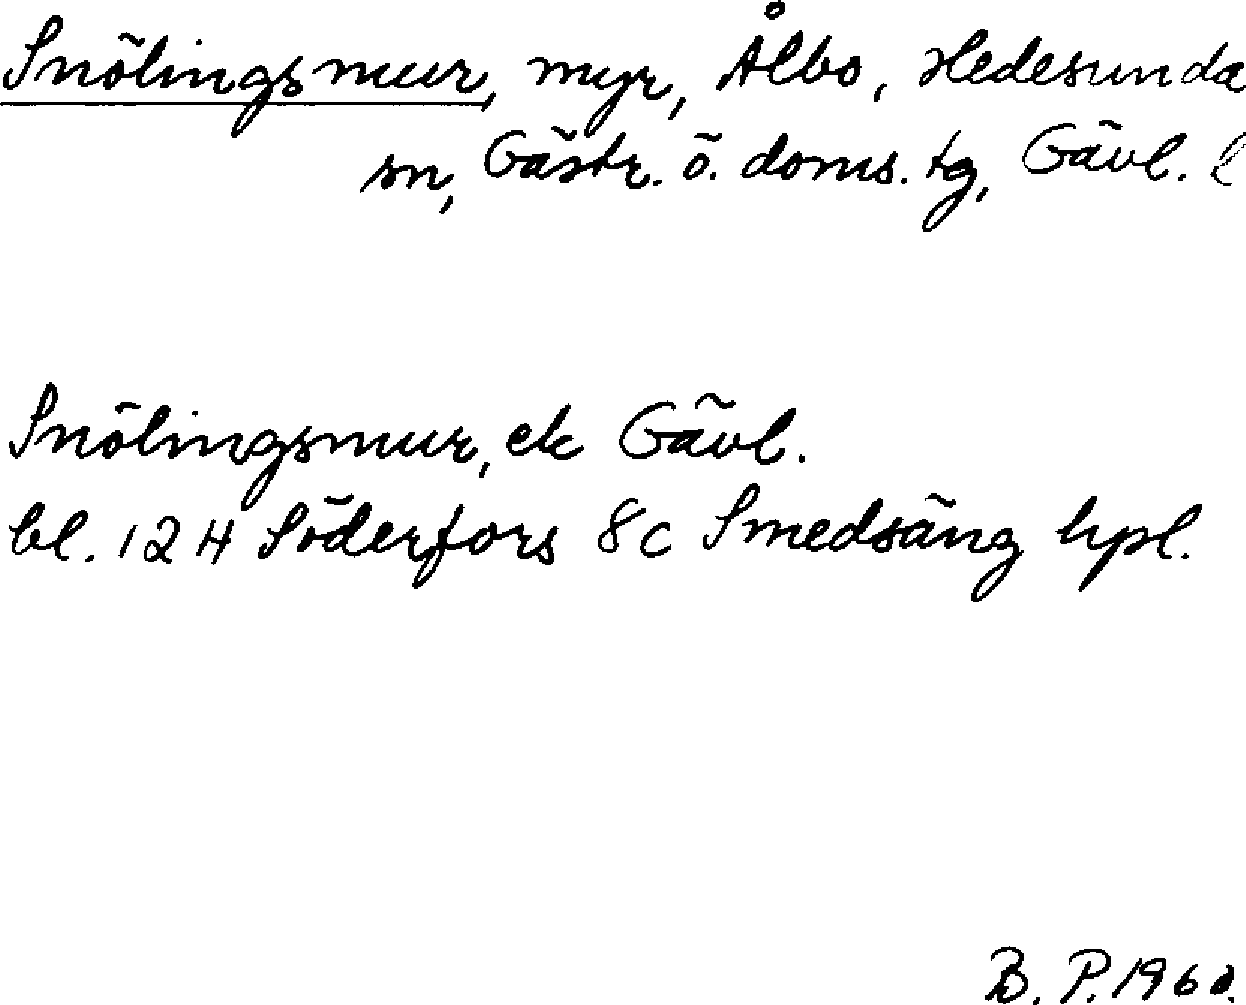 Snölingsmur, myr, Ålbo, Hedesunda
sn, Gästr. ö. doms. tg, Gävl. l
Snölingsmur, ek Gävl.
bl. 12 H Söderfors 8 c Smedsäng hpl.
B. P. 1960.